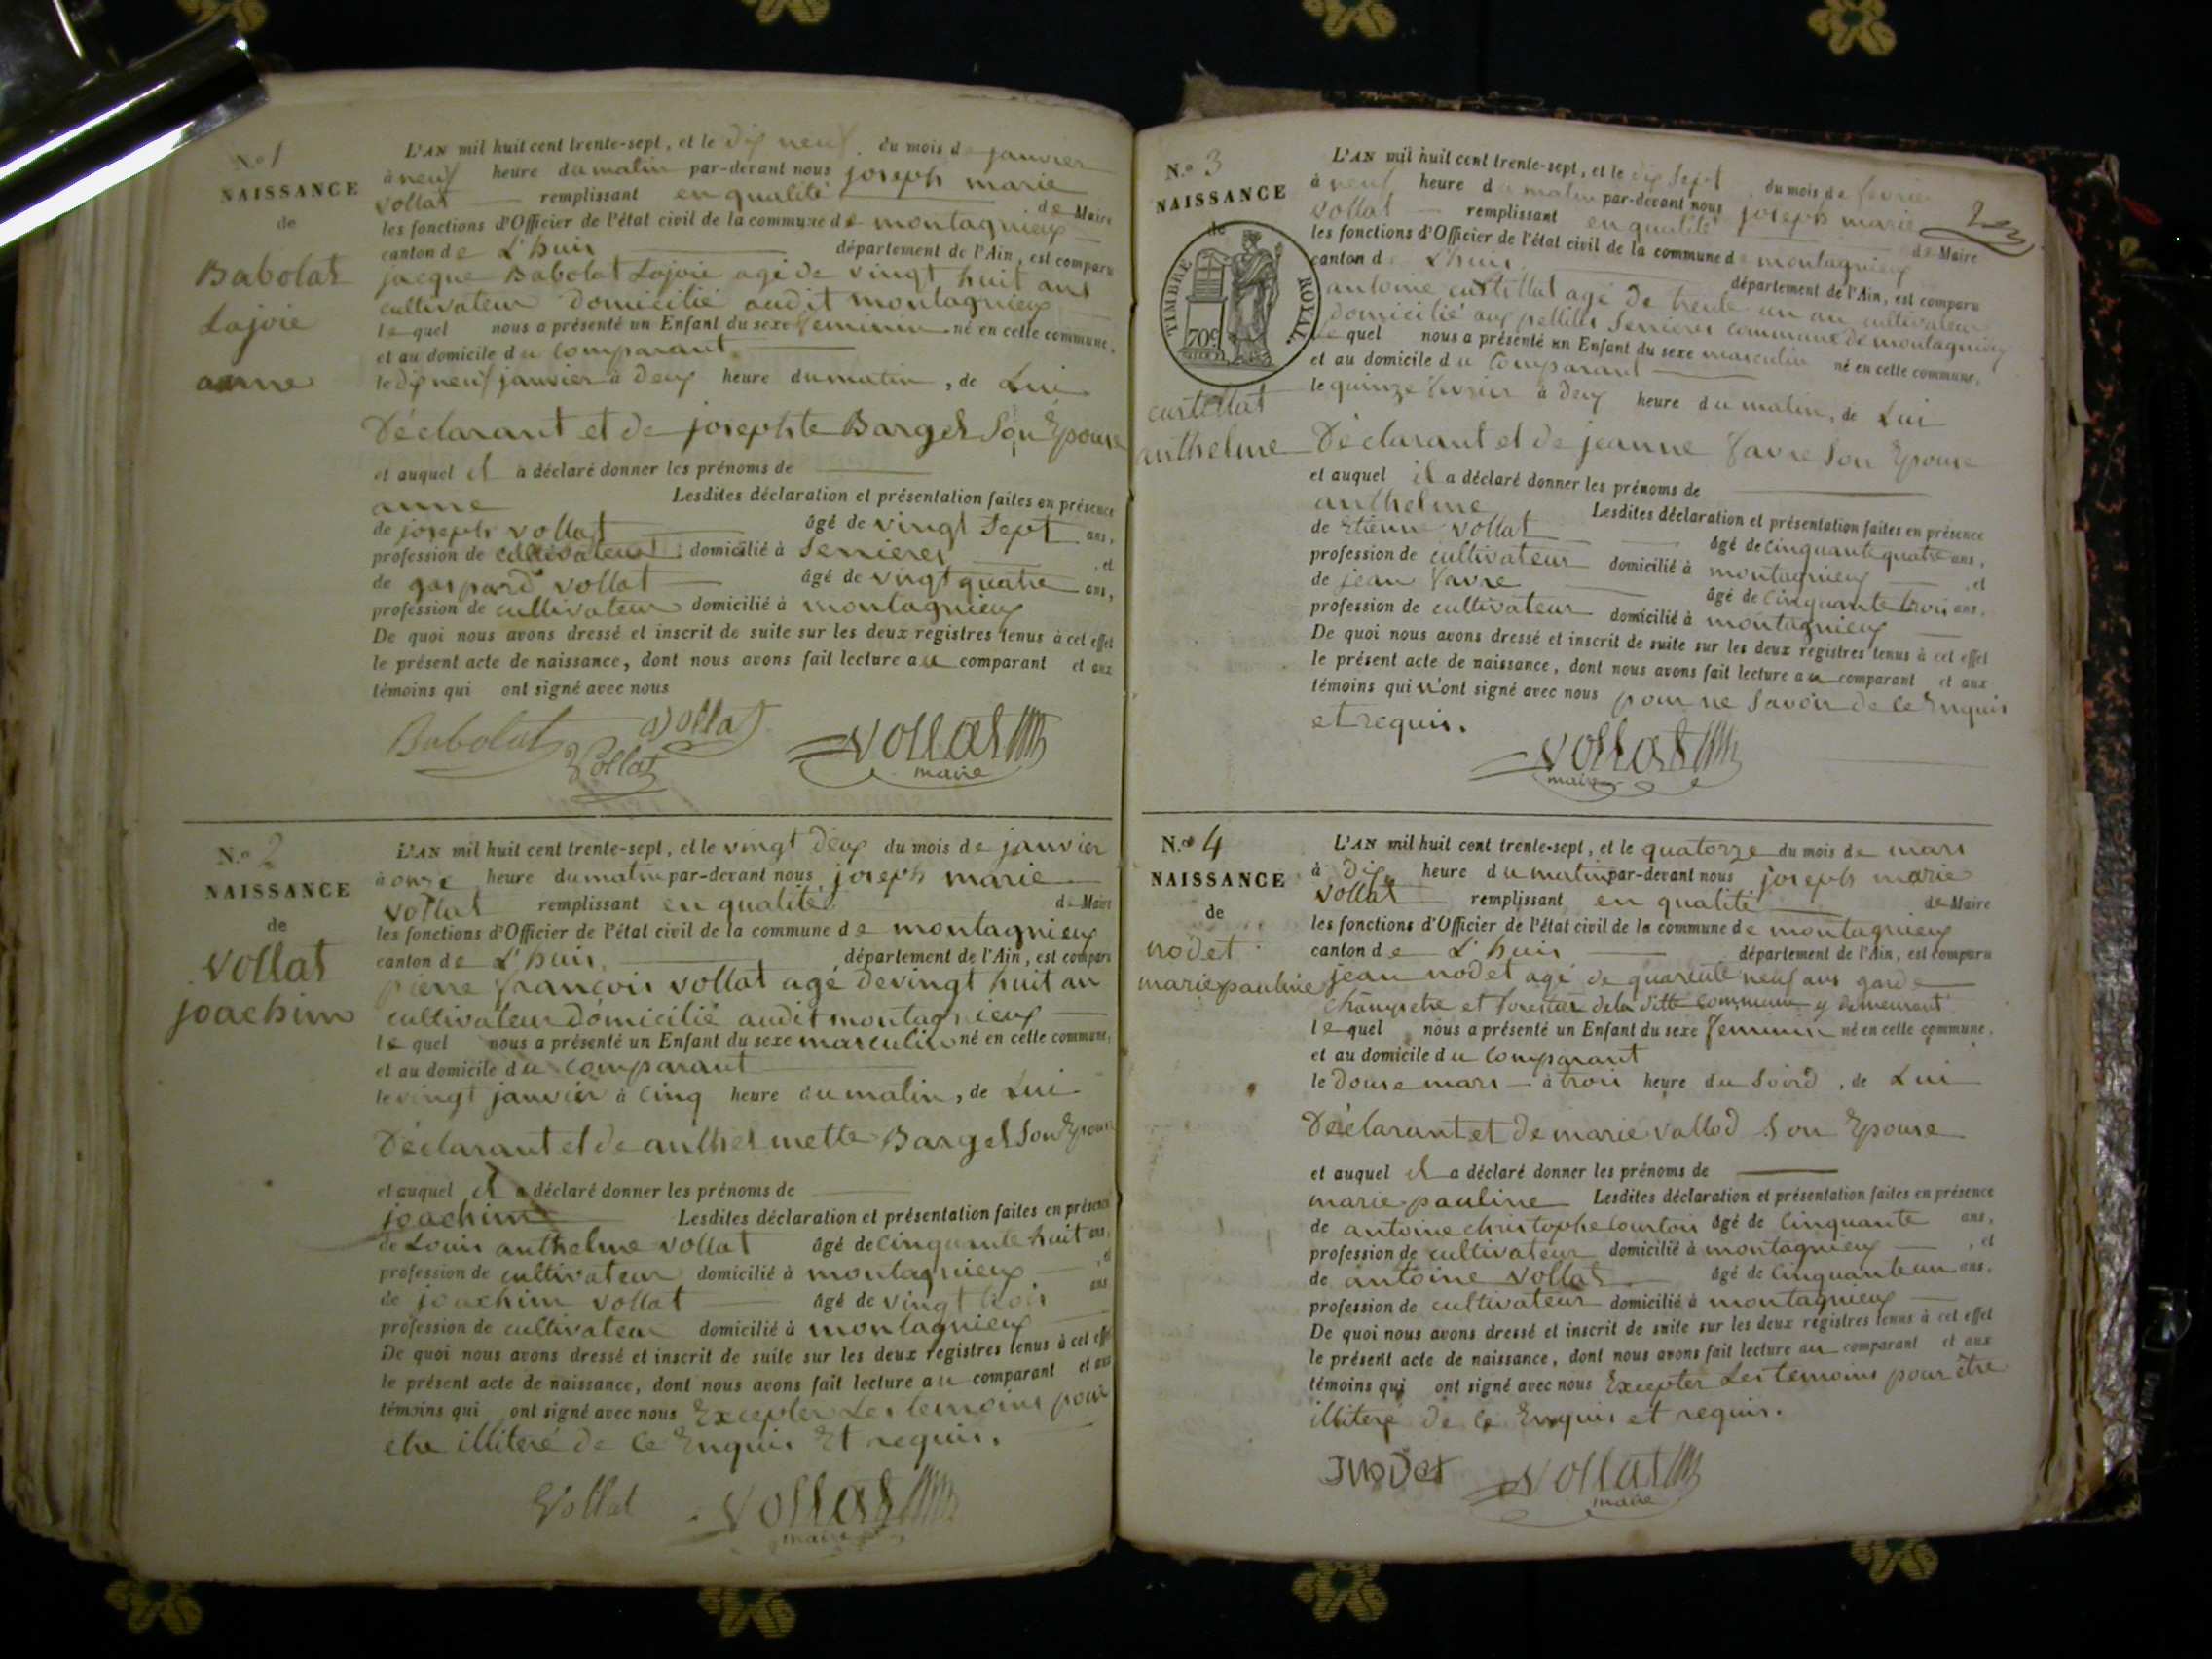 N.o 1
NAISSANCE
de
Babolat
Lajoie
anne
L'AN mil huit cent trente-sept, et le dix neuf du mois de janvier
à neuf heure du matin par-devant nous joseph marie
vollat remplissant en qualité de Maire
les fonctions d'Officier de l'état civil de la commune de montagnieux
canton de L'huis département de l'Ain, est comparu
jacque Babolat Lajoie agé de vingt huit ans
cultivateur domicilié audit montagnieux
lequel nous a présenté un Enfant du sexe feminin né en cette commune,
et au domicile du comparant
le dix neuf janvier à deux heure du matin, de Lui
Déclarant et de josephte Barget Son Epouse
et auquel il a déclaré donner les prénoms de
anne Lesdites déclaration et présentation faites en présence
de joseph vollat âgé de vingt Sept ans,
profession de cultivateur domicilié à Serrieres, et
de gaspard vollat âgé de vingt quatre ans,
profession de cultivateur domicilié à montagnieux
De quoi nous avons dressé et inscrit de suite sur les deux registres tenus à cet effet
le présent acte de naissance, dont nous avons fait lecture au comparant et aux
témoins qui ont signé avec nous
Babolat vollat vollat
Vollat maire
N.o 2
NAISSANCE
de
vollat
joachim
L'AN mil huit cent trente-sept, et le vingt deux du mois de janvier
à onze heure du matin par-devant nous joseph marie
vollat remplissant en qualité de Maire
les fonctions d'Officier de l'état civil de la commune de montagnieux
canton de L'huis département de l'Ain, est comparu
pierre françois vollat agé de vingt huit an
cultivateur domicilié audit montagnieux
lequel nous a présenté un Enfant du sexe masculin né en cette commune,
et au domicile du comparant
le vingt janvier à cinq heure du matin, de Lui
Déclarant et de anthelmette Barget Son Epouse
et auquel il a déclaré donner les prénoms de
joachim Lesdites déclaration et présentation faites en présence
de Louis anthelme vollat âgé de cinquante huit ans,
profession de cultivateur domicilié à montagnieux, et
de joachim vollat âgé de vingt trois ans
profession de cultivateur domicilié à montagnieux
De quoi nous avons dressé et inscrit de suite sur les deux registres tenus à cet effet
le présent acte de naissance, dont nous avons fait lecture au comparant et aux
témoins qui ont signé avec nous Excepter Les temoins pour
etre illiteré de ce Enquis Et requis.
Vollat vollat
maire
N.o 3
NAISSANCE
de
TIMBRE ROYAL
70c
curtillat
anthelme
L'AN mil huit cent trente-sept, et le dix Sept du mois de fevrier
à neuf heure du matin par-devant nous joseph marie
vollat remplissant en qualité de Maire
les fonctions d'Officier de l'état civil de la commune de montagnieux
canton de L'huis département de l'Ain, est comparu
antoine curtillat agé de trente un an cultivateur
domicilié aux Serrieres commune de montagnieux
lequel nous a présenté un Enfant du sexe masculin né en cette commune,
et au domicile du comparant
le quinze fevrier à deux heure du matin, de Lui
Déclarant et de jeanne favre Son Epouse
et auquel il a déclaré donner les prénoms de
anthelme Lesdites déclaration et présentation faites en présence
de Etienne vollat âgé de cinquante quatre ans,
profession de cultivateur domicilié à montagnieux, et
de jean favre âgé de cinquante trois ans,
profession de cultivateur domicilié à montagnieux
De quoi nous avons dressé et inscrit de suite sur les deux registres tenus à cet effet
le présent acte de naissance, dont nous avons fait lecture au comparant et aux
témoins qui n'ont signé avec nous pour ne Savoir de ce Enquis
et requis.
vollat
maire
N.o 4
NAISSANCE
de
nodet
marie pauline
L'AN mil huit cent trente-sept, et le quatorze du mois de mars
à dix heure du matin par-devant nous joseph marie
vollat remplissant en qualité de Maire
les fonctions d'Officier de l'état civil de la commune de montagnieux
canton de L'huis département de l'Ain, est comparu
jean nodet agé de quarente neuf ans garde
champetre et forestier dela ditte commune y demeurant
lequel nous a présenté un Enfant du sexe feminin né en cette commune,
et au domicile du comparant
le douse mars à trois heure du Soird, de Lui
Déclarant et de marie vallod Son Epouse
et auquel il a déclaré donner les prénoms de
marie pauline Lesdites déclaration et présentation faites en présence
de antoine christophe courtois âgé de cinquante ans,
profession de cultivateur domicilié à montagnieux, et
de antoine vollat âgé de cinquante un ans,
profession de cultivateur domicilié à montagnieux
De quoi nous avons dressé et inscrit de suite sur les deux registres tenus à cet effet
le présent acte de naissance, dont nous avons fait lecture au comparant et aux
témoins qui ont signé avec nous Excepter Les temoins pour être
illitere de ce Enquis et requis.
Jnodet vollat
maire